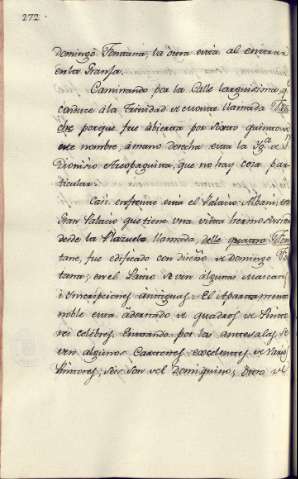 272.
Domingo Fontana, la otra está al entrar
en la Transla.
Caminando por la Calle larguissima q
conduce á la Trinidad de Monte llamada
porque fue abierta por Sixto quinto
ese nombre, á mano derecha está la Yg.ª de S.
Dionisio Areopaguita, que no hay cosa par
ticular.
Casi enfrente está el Palacio Albani
Gran Palacio que tiene una vista hermosissima
desde la Plazuela llamada delle quatro Fon
tane, fue edificado con diseño de Domingo Fon
tana; en el Patio se ven algunas Mascaras
è Inscripciones Antiguas. El Apartamento
noble está adornado de quadros de Pinto
res celebres. Entrando por las antesalas se
ven algunos Cartones excelentes de varios
Pintores; seis son del Dominiquino; otro de